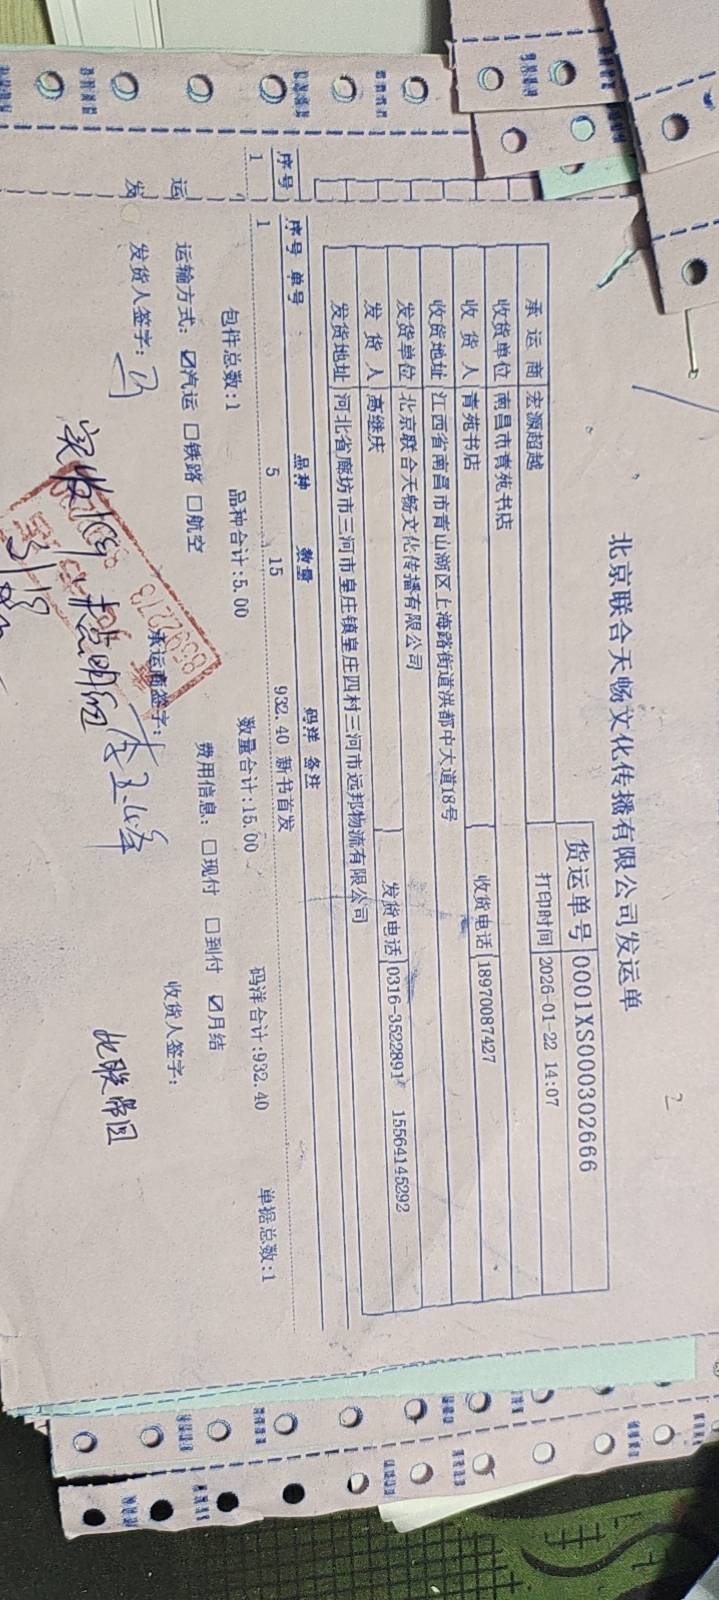 北京联合天畅文化传播有限公司发运单
货运单号 0001XS000302666
承运商 宏源超越 打印时间 2026-01-22 14:07
收货单位 南昌市青苑书店
收货人 青苑书店 收货电话 18970087427
收货地址 江西省南昌市青山湖区上海路街道洪都中大道18号
发货单位 北京联合天畅文化传播有限公司
发货人 高继庆 发货电话 0316-3522891 15564145292
发货地址 河北省廊坊市三河市皇庄镇皇庄四村三河市远邦物流有限公司
序号 单号 品种 数量 码洋 备注
1 5 15 932.40 新书首发
包件总数:1 品种合计:5.00 数量合计:15.00 码洋合计:932.40 单据总数:1
运输方式: ☑汽运 □铁路 □航空 费用信息: □现付 □到付 ☑月结
发货人签字: 承运商签字: 收货人签字:
实收1件
此联带回
序号
1
运
发
2